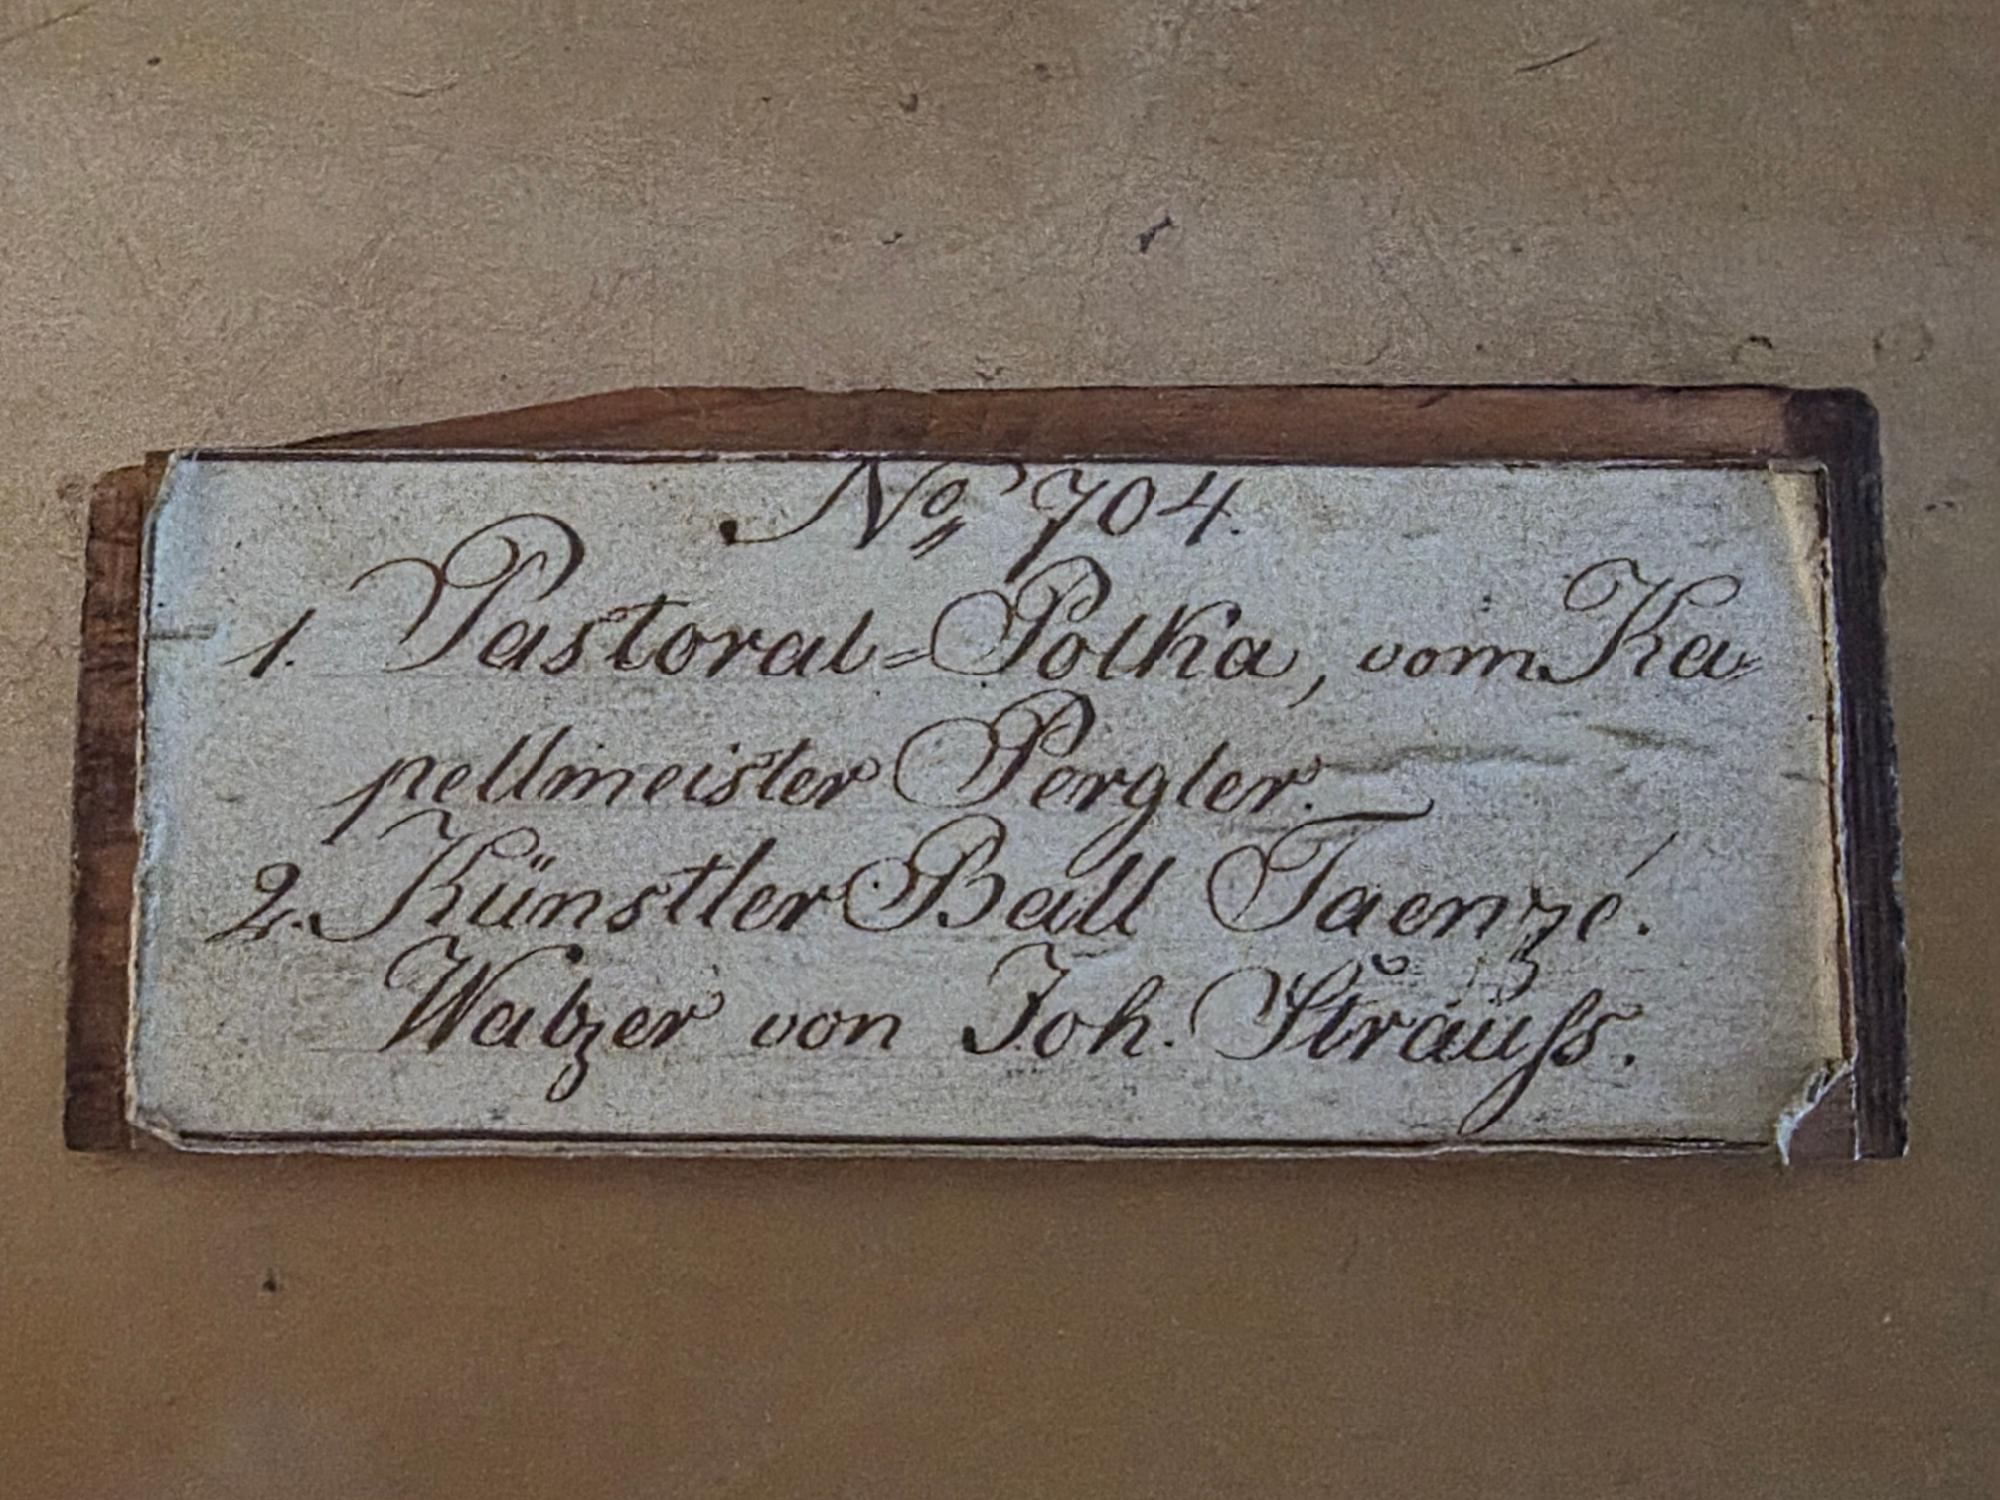 No. 704.
1. Pastoral=Polka, vom Ka-
pellmeister Pergler.
2. Künstler Ball Taenzé.
Walzer von Joh. Strauſs.